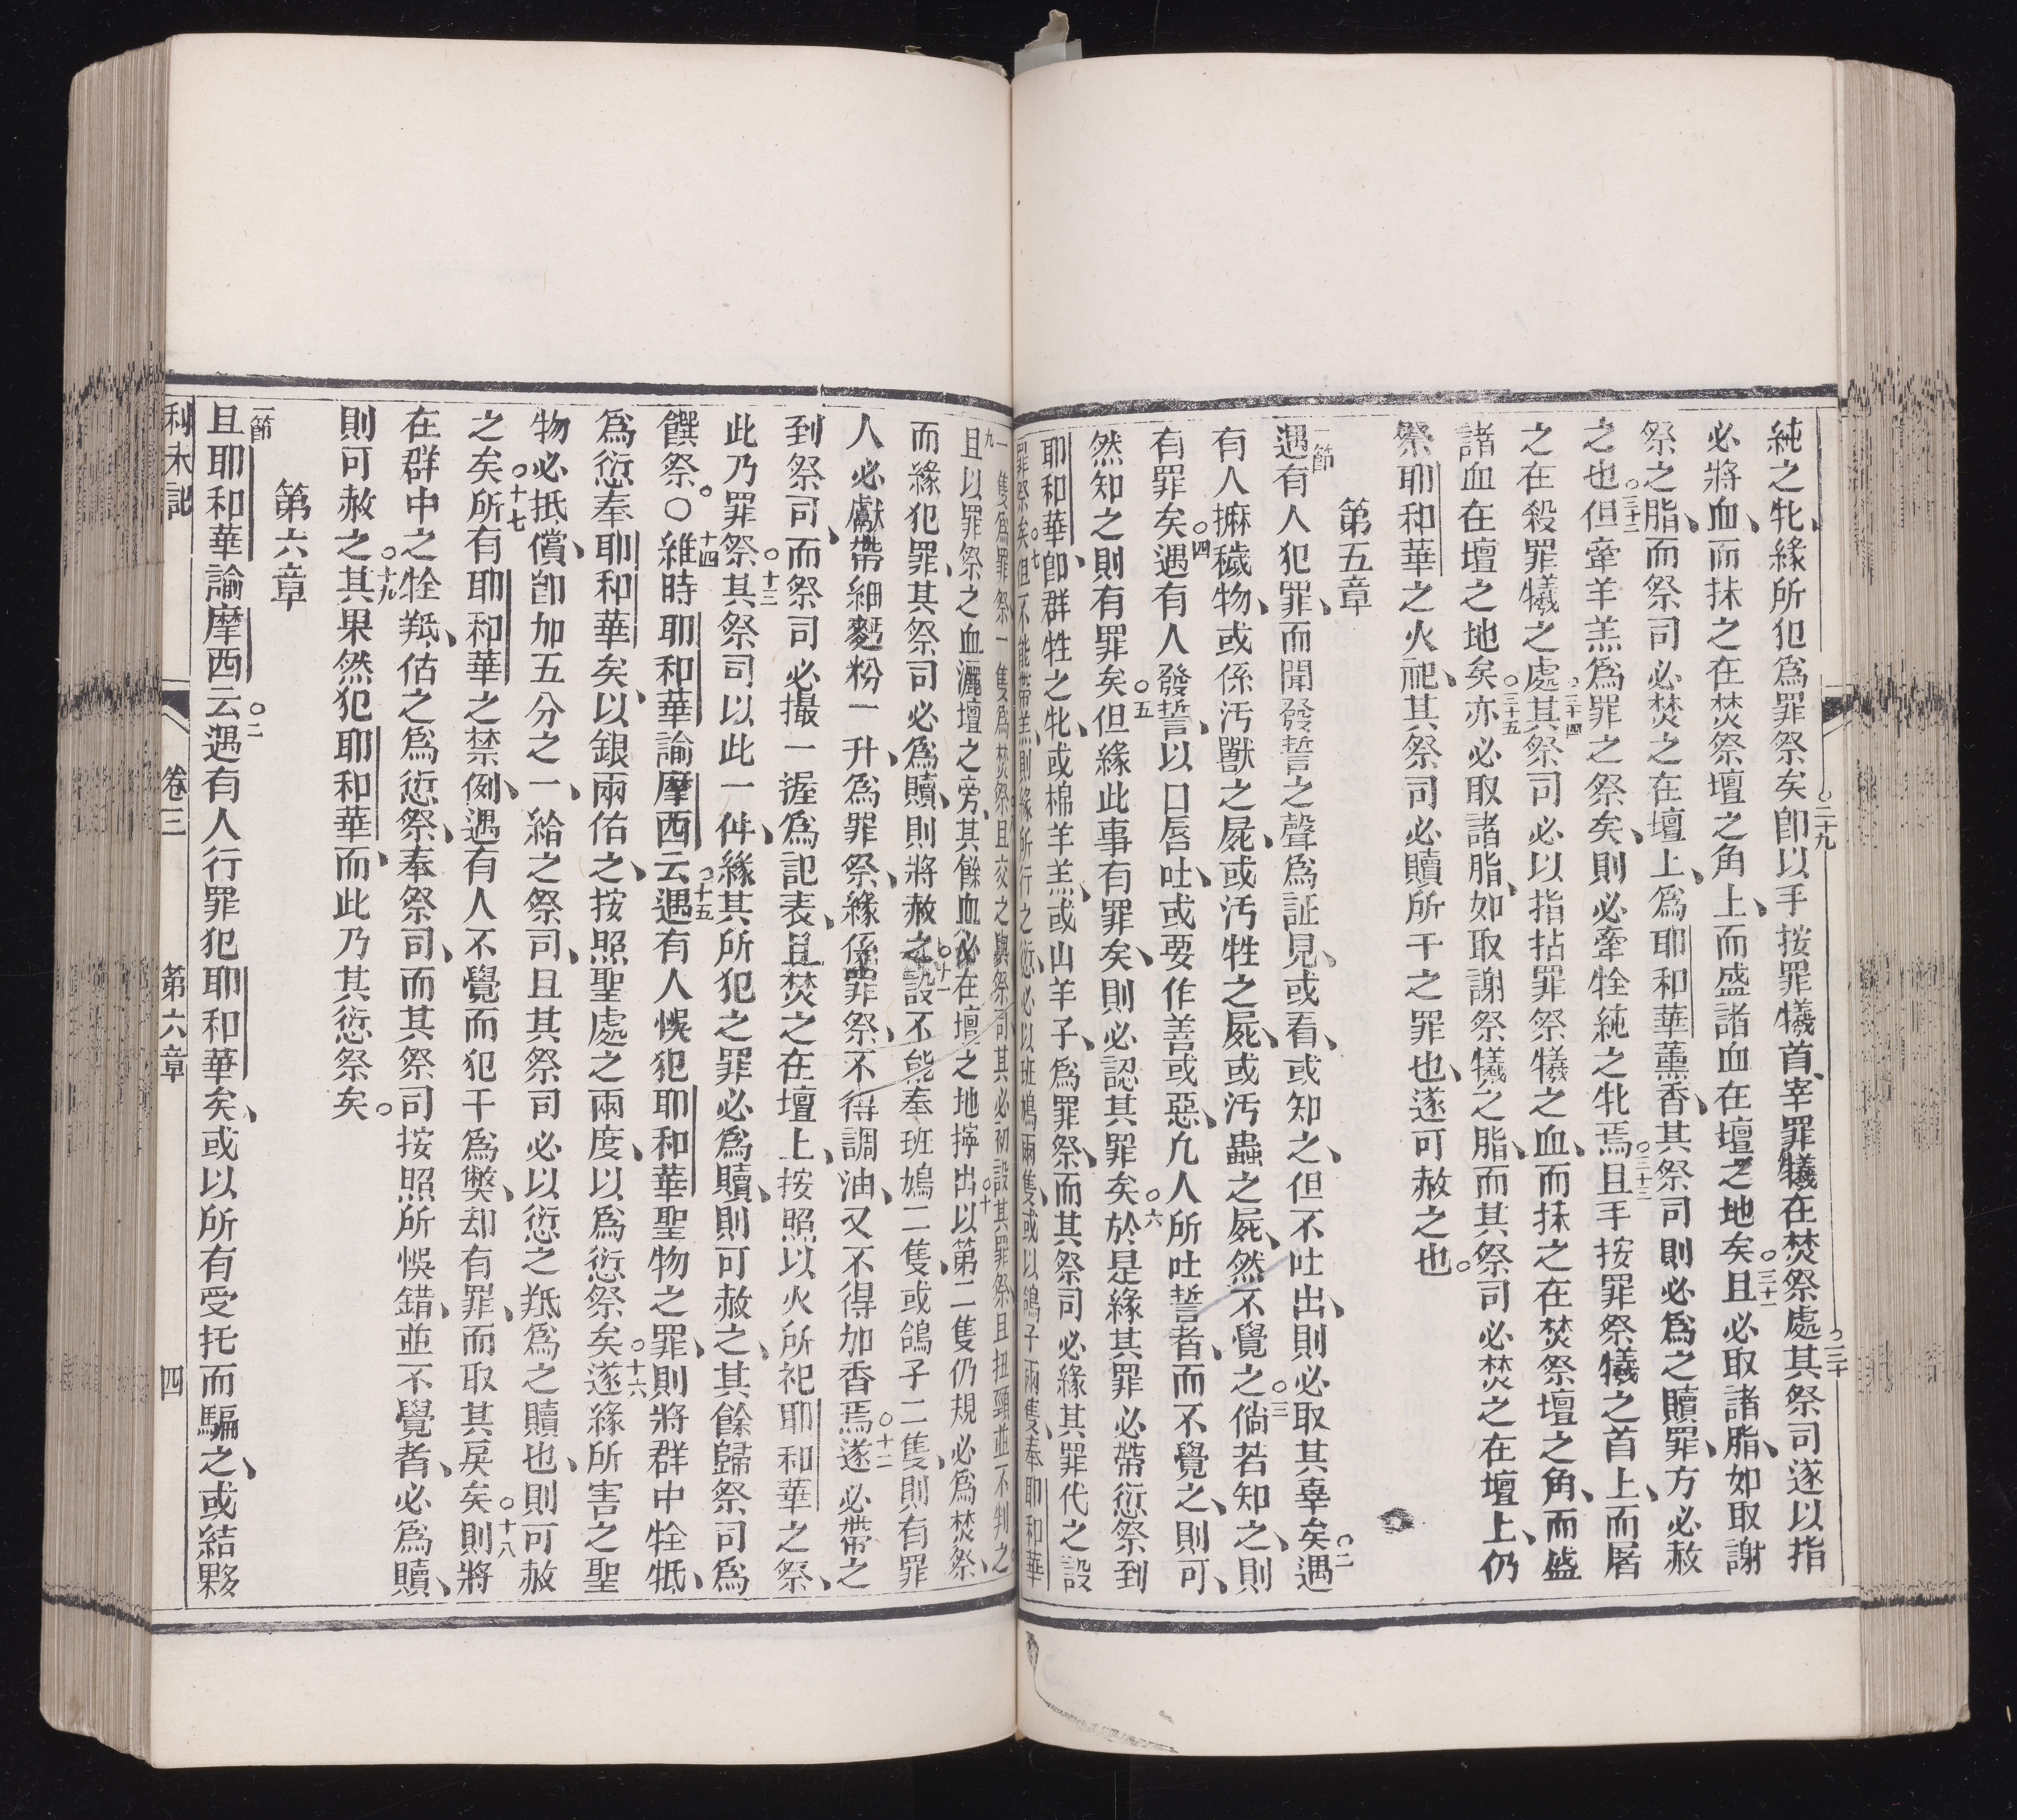 純之牝、緣所犯爲罪祭矣○二十九卽以手按罪犧首、宰罪犧在焚祭處○三十其祭司遂以指
必將血、而抹之在焚祭壇之角上、而盛諸血在壇之地矣○三十一且必取諸脂、如取謝
祭之脂、而祭司必焚之在壇上、爲耶和華薰香、其祭司則必爲之贖罪、方必赦
之也○三十二但牽羊羔爲罪之祭矣、則必牽牷純之牝焉○三十三且手按罪祭犧之首上、而屠
之在殺罪犧之處○三十四其祭司必以指拈罪祭犧之血、而抹之在焚祭壇之角、而盛
諸血在壇之地矣○三十五亦必取諸脂、如取謝祭犧之脂、而其祭司必焚之在壇上、仍
祭耶和華之火祀、其祭司必贖所干之罪也、遂可赦之也。
第五章
一節遇有人犯罪、而聞發誓之聲爲証見、或看、或知之、但不吐出、則必取其辜矣○二遇
有人摵穢物、或係汚獸之屍、或汚牲之屍、或汚蟲之屍、然不覺之○三倘若知之、則
有罪矣○四遇有人發誓、以口唇吐、或要作善或惡、凢人所吐誓者、而不覺之、則可、
然知之則有罪矣○五但緣此事有罪矣、則必認其罪矣○六於是緣其罪必帶愆祭到
耶和華、卽群牲之牝、或棉羊羔、或山羊子、爲罪祭、而其祭司必緣其罪代之設
罪祭矣○七但不能帶羔、則緣所行之愆、必以班鳩兩隻、或以鴿子兩隻、奉耶和華
一隻爲罪祭、一隻爲焚祭○八且交之與祭司、其必初設其罪祭、且扭頸並不判之○
九且以罪祭之血灑壇之旁、其餘血必在壇之地擰出○十以第二隻仍規必爲焚祭、
而緣犯罪、其祭司必爲贖、則將赦之○十一設不能奉班鳩二隻、或鴿子二隻、則有罪
人必獻帶細麪粉一升爲罪祭、緣係罪祭、不得調油、又不得加香焉○十二遂必帶之
到祭司、而祭司必撮一握爲記表、且焚之在壇上、按照以火所祀耶和華之祭、
此乃罪祭○十三其祭司以此一件、緣其所犯之罪必爲贖、則可赦之、其餘歸祭司爲
饌祭。○十四維時耶和華諭摩西云○十五遇有人悞犯耶和華聖物之罪、則將群中牷牴、
爲愆奉耶和華矣、以銀兩估之、按照聖處之兩度、以爲愆祭矣○十六遂緣所害之聖
物必抵償、卽加五分之一、給之祭司、且其祭司必以愆之羝爲之贖也、則可赦
之矣○十七所有耶和華之禁例、遇有人不覺而犯干爲獘、却有罪、而取其戾矣○十八則將
在群中之牷羝、估之爲愆祭、奉祭司、而其祭司按照所悞錯、並不覺者、必爲贖、
則可赦之○十九其果然犯耶和華、而此乃其愆祭矣。
第六章
一節且耶和華諭摩西云○二遇有人行罪犯耶和華矣、或以所有受托而騙之、或結夥
利未記 卷三 第六章 四